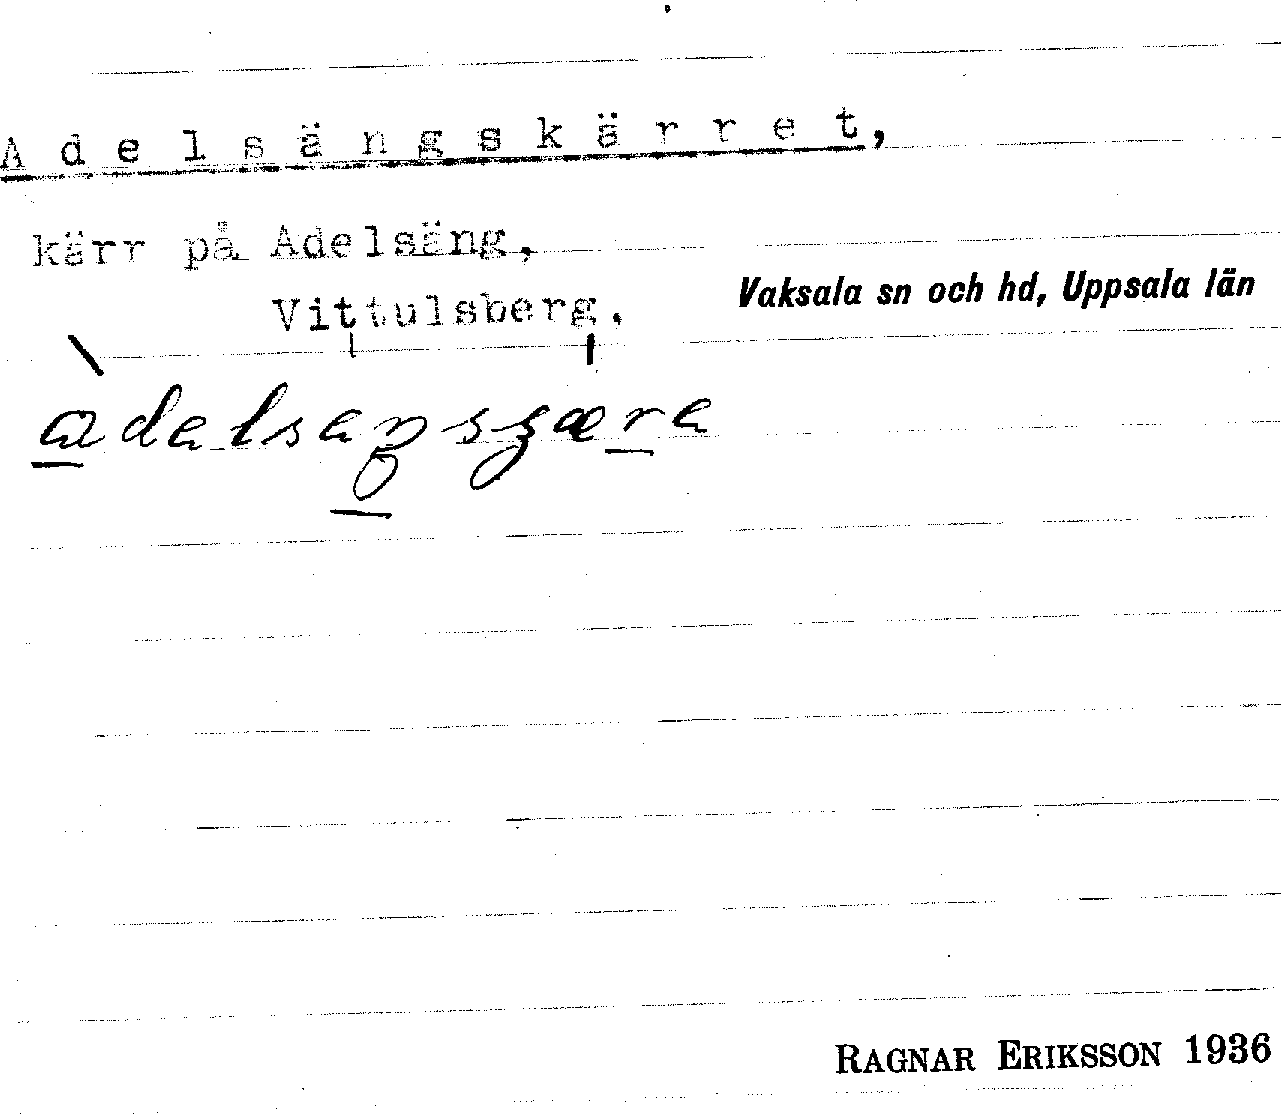 Adelsängskärret,
kärr på Adelsäng,
Vittulsberg.
Vaksala sn och hd, Uppsala län
RAGNAR ERIKSSON 1936